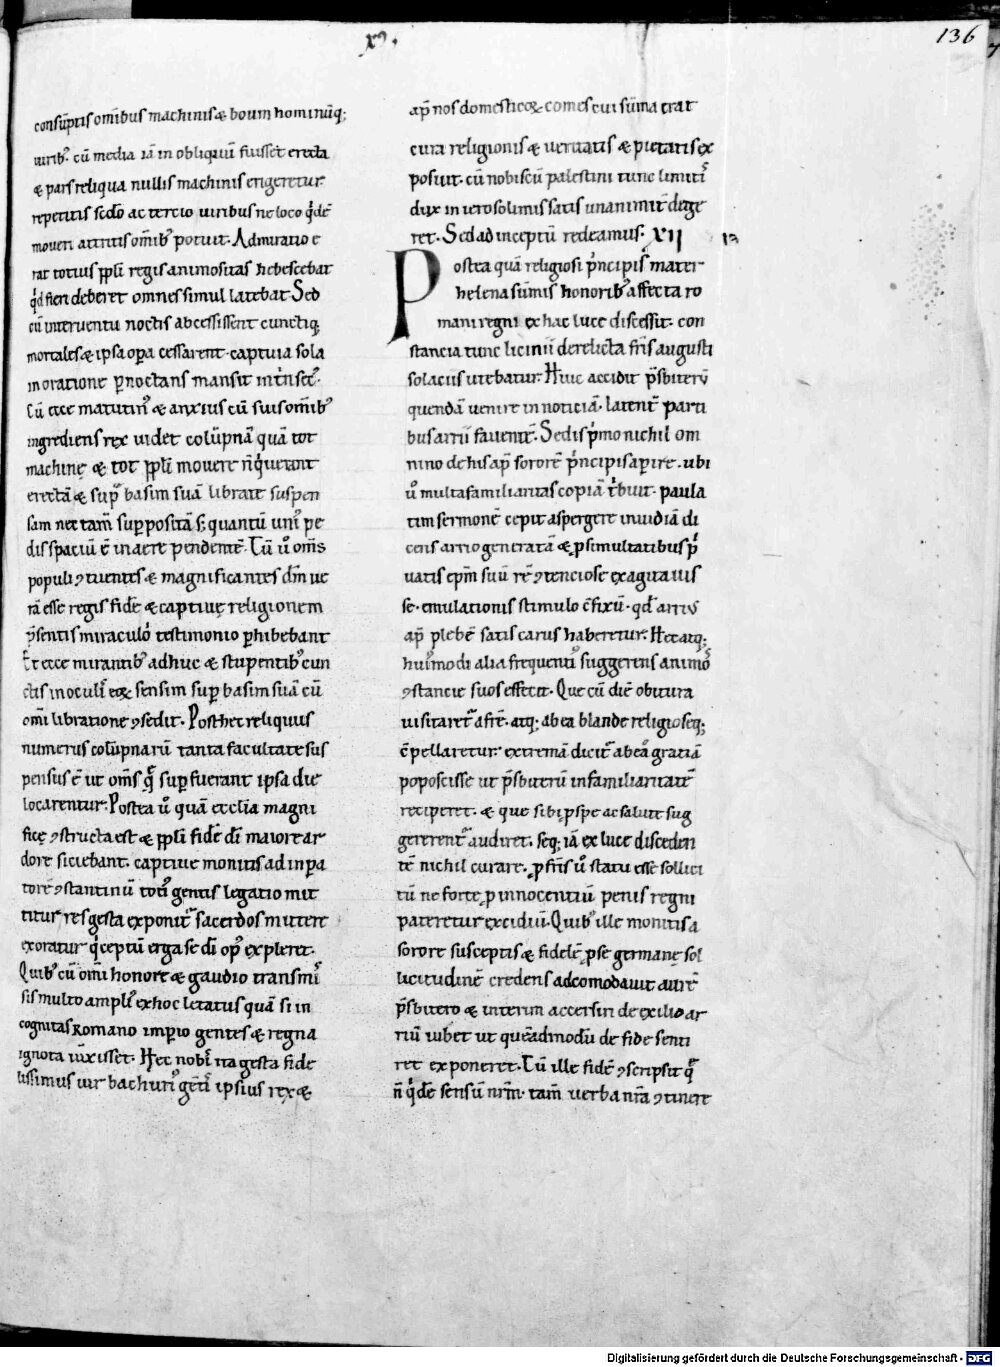 x̄ꝯ.
136
consūptis om̄ibus machinis & boum hominūq;
uirib᾽. cū media iā in obliquū fuisset erecta
& pars reliqua nullis machinis erigeretur.
repetitis sed̄o ac tercio uiribus ne loco q'dē
moueri attritis om̄ib᾽ potuit. Admiratio e
rat totius ppl̄i regis animositas hebescebat
q'd fieri deberet omnes simul latebat. Sed
cū interuentu noctis abcessissent cunctiq;
mortales & ipsa oꝑa cessarent. captiua sola
in oratione ꝑnoctans mansit intrinsec᾽.
Cū ecce matutin᾽ & anxius cū suis om̄ib᾽
ingrediens rex uidet colūpnā quā tot
machinę & tot ppl̄i mouere n̄ q'uerant
erectā & sup᷒ basim suā librate suspen
sam nec tam̄ suꝑpositā s; quantū uni᾽ pe
dis spaciū ē in aere pendentē. Tū u̓ om̄s
populi ꝯtuentes & magnificantes dm̄ ue
rā esse regis fidē & captiuę religionem
p̄sentis miraculo' testimonio ꝑhibebant
Et ecce mirantib᾽ adhuc & stupentib᾽ cun
ctis in oculis eoꝝ sensim suꝑ basim suā cū
om̄i libratione ꝯsedit. Post hec reliquus
numerus colūpnarū tanta facultate sus
pensus ē ut om̄s q̄ suꝑfuerant ipsa die
locarentur. Postea u̓ quā ecclīa magni
ficę ꝯstructa est & ppl̄i fidē dī maiore ar
dore siciebant. captiue monitis ad inꝑa
torē ꝯstantinū toti᾽ gentis legatio mit
titur res gesta exponit᷒ sacerdos mittere
exoratur q' ceptū erga se dī op᾽ expleret.
Quib᾽ cū om̄i honore & gaudio transmi᷒
sis multo ampli᾽ ex hoc letatus quā si in
cognitas Romano imꝑio gentes & regna
ignota iūxisset. Hec nob' ita gesta fide
lissimus uir bachuri᾽ gēti᾽ ipsius rex &
ap̄ nos domesticoꝝ comes cui sūma erat
cura religionis & ueritatis & pietatis ex
posuit. cū nobiscū palestini tunc limiti᷒
dux in ierosolimis satis unanimit᷒ dege
ret. Sed ad inceptū redeamus. XII 13
Postea quā religiosi p'ncipis mater
helena sūmis honorib᾽ affecta ro
mani regni ex hac luce discessit. con
stancia tunc licinii derelicta fr̄is augusti
solaciis utebatur. Huic accidit p̄sbiterū
quendā uenire in noticiā. latent᷒ parti
bus arrii fauentē. Sed is p'mo nichil om
nino de his ap̄ sororē p'ncipis aperire. ubi
u̓ multa familiaritas copiā t'buit. paula
tim sermonē cepit aspergere inuidiā di
cens arrio generatā & ꝑ simultatibus p'
uatis ep̄m suū rē ꝯtenciose exagitauis
se. emulationis stimulo c̄fixū. qd̓ arrius
ap̄ plebē satis carus haberetur. Hec atq;
hui᾽modi alia frequenti᾽ suggerens animo᷒
ꝯstancie suos effecit. Que cū diē obitura
uisitaret᷒ a fr̄e. atq; ab ea blande religioseq;
c̄pellaretur. extremā dicit᷒ ab eo gratiā
poposcisse ut p̄sbiterū in familiaritatē
reciperet. & que sibi ꝓ spe ac salute sug
gererent᷒ audiret. seq; iā ex luce disceden
tē nichil curare. ꝓ fr̄is u̓ statu esse sollici
tū ne forte ꝓ innocentiū penis regni
pateretur excidiū. Quib᾽ ille monitis a
sorore susceptis & fidelē ꝓ se germanę sol
licitudinē credens adcomodauit aurē
p̄sbitero & interim accersiri de exilio ar
riū iubet ut queādmodū de fide senti
ret exponeret. Tū ille fidē ꝯscripsit q̄
n̄ q'dē sensū nr̄m. tam̄ uerba nr̄a ꝯtinere
Digitalisierung gefördert durch die Deutsche Forschungsgemeinschaft - DFG